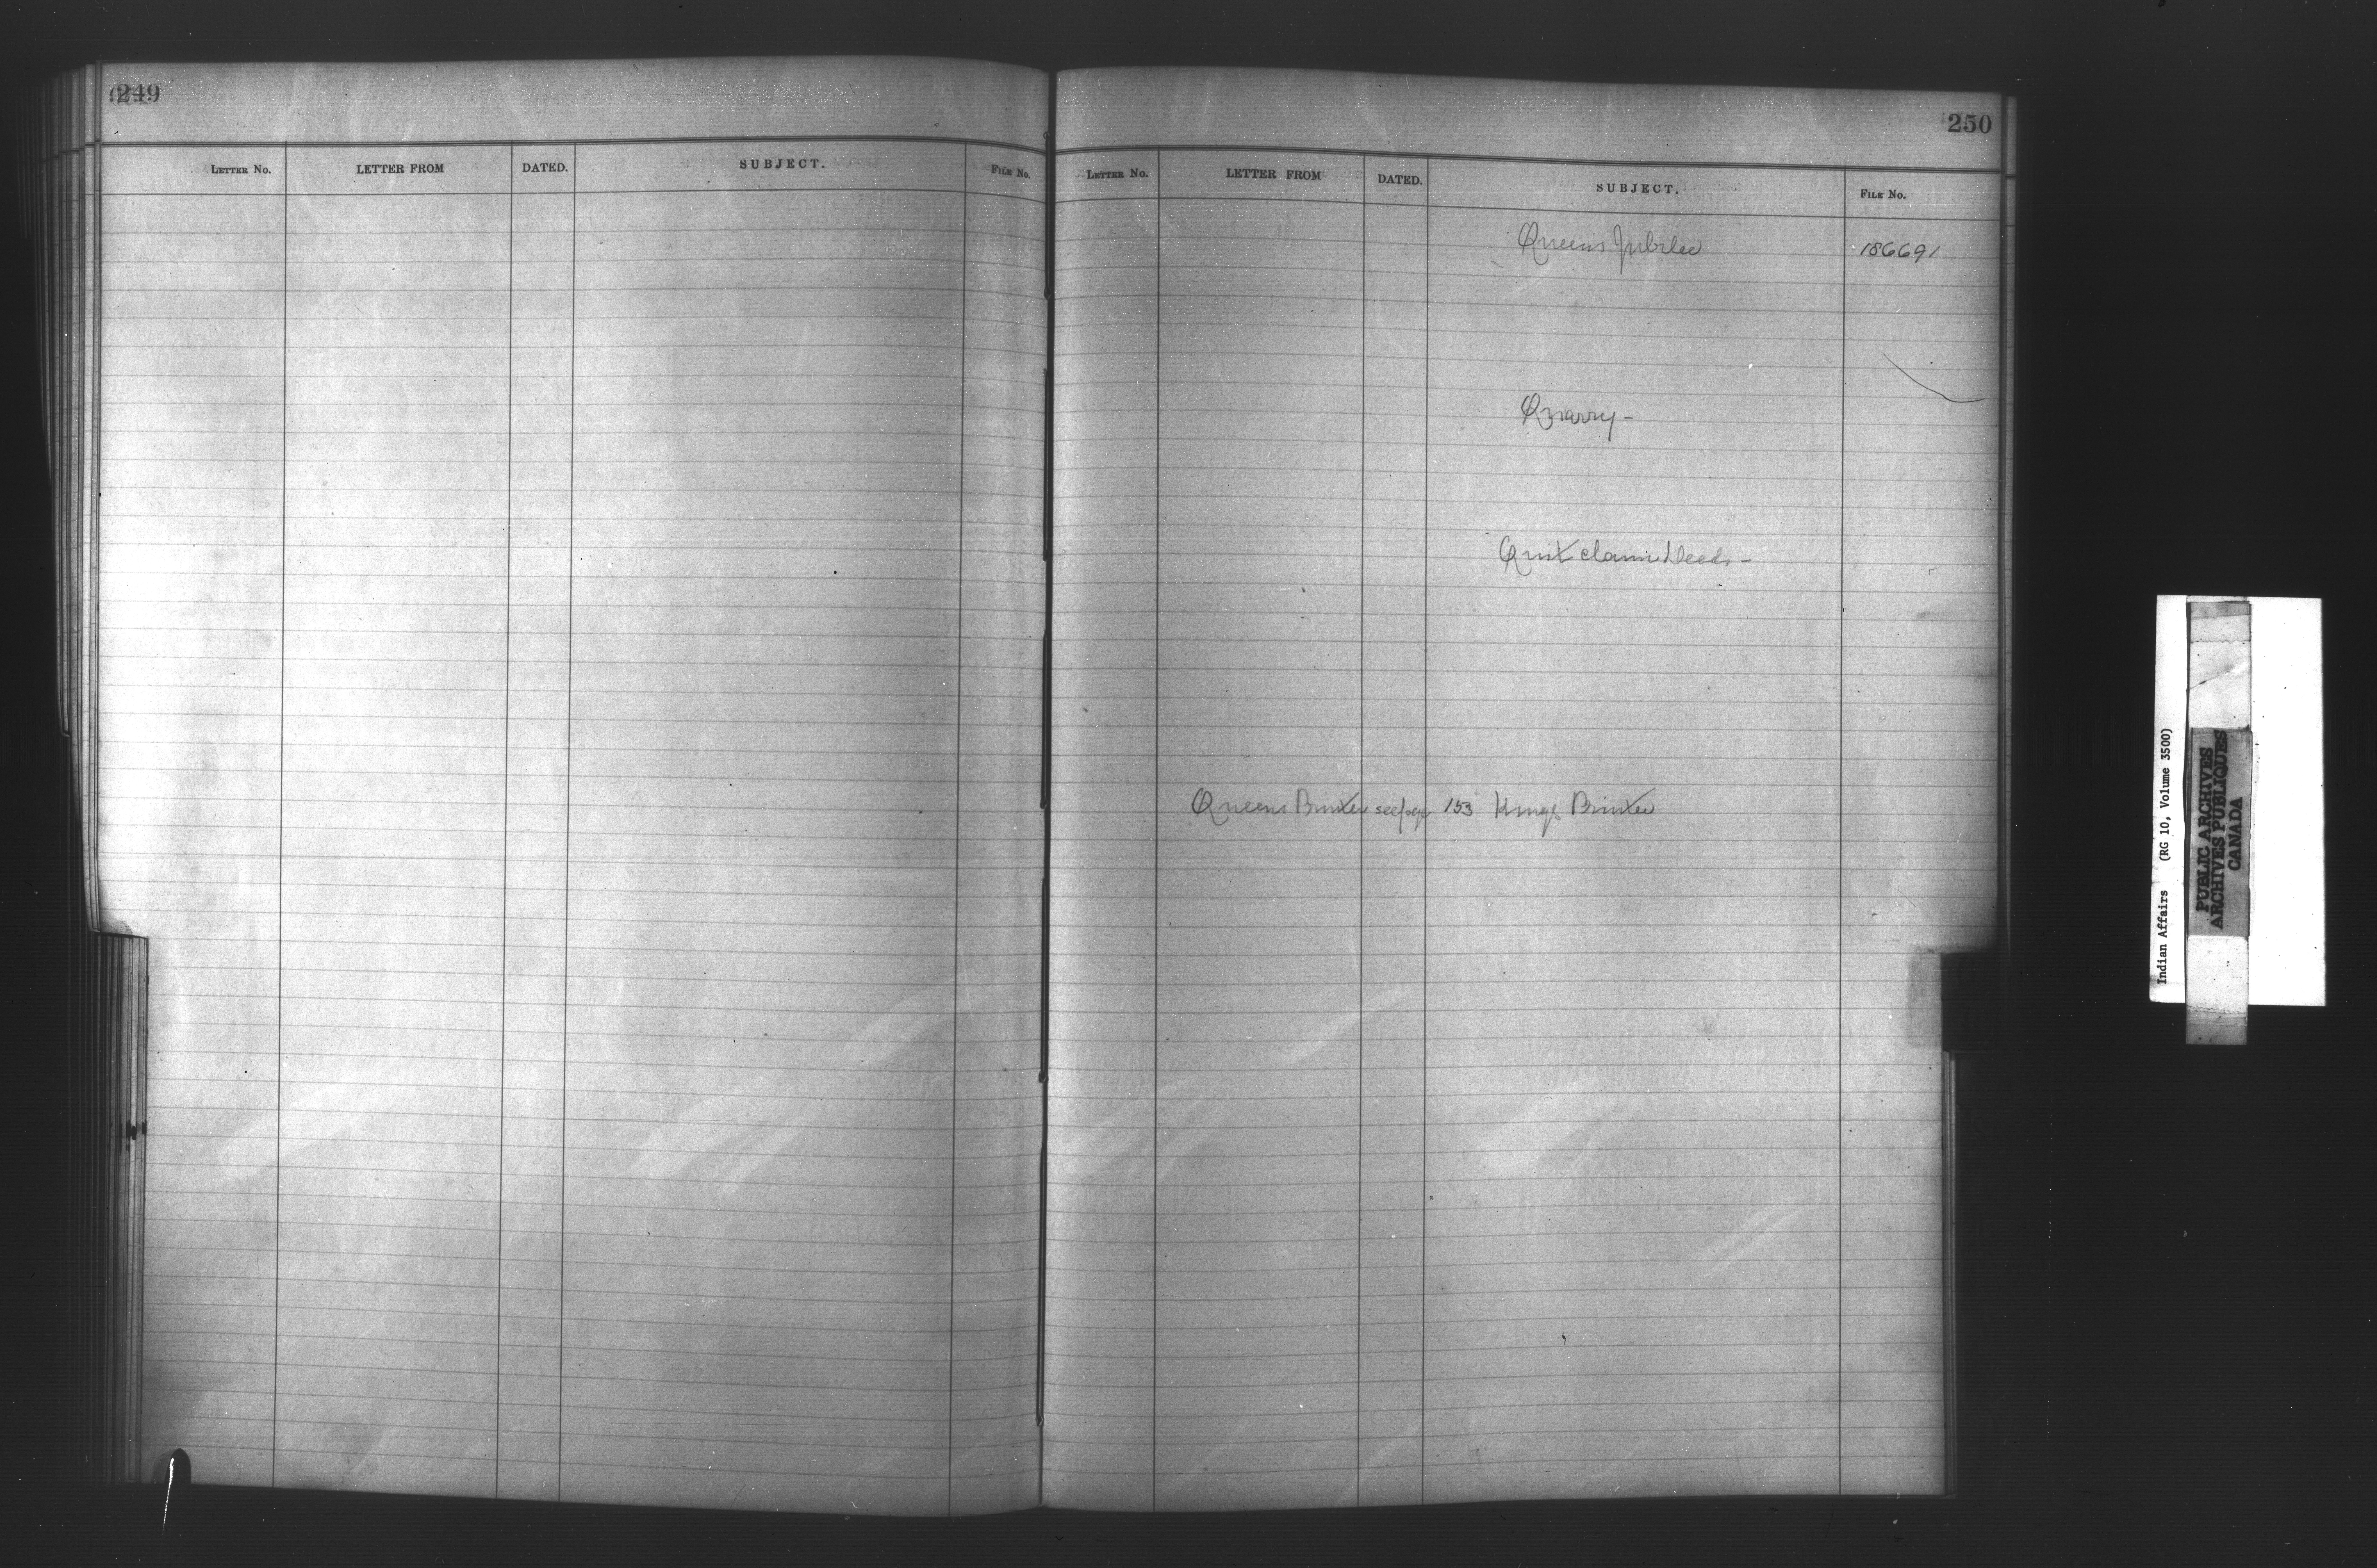 249
LETTER No. LETTER FROM DATED. SUBJECT. FILE No.
250
LETTER No. LETTER FROM DATED. SUBJECT. FILE No.
Queens Jubilee 186691
Quarry -
Quit claim Deeds -
Queens Printer see page 153 Kings Printer
Indian Affairs (RG 10, Volume 3500)
PUBLIC ARCHIVES
ARCHIVES PUBLIQUES
CANADA